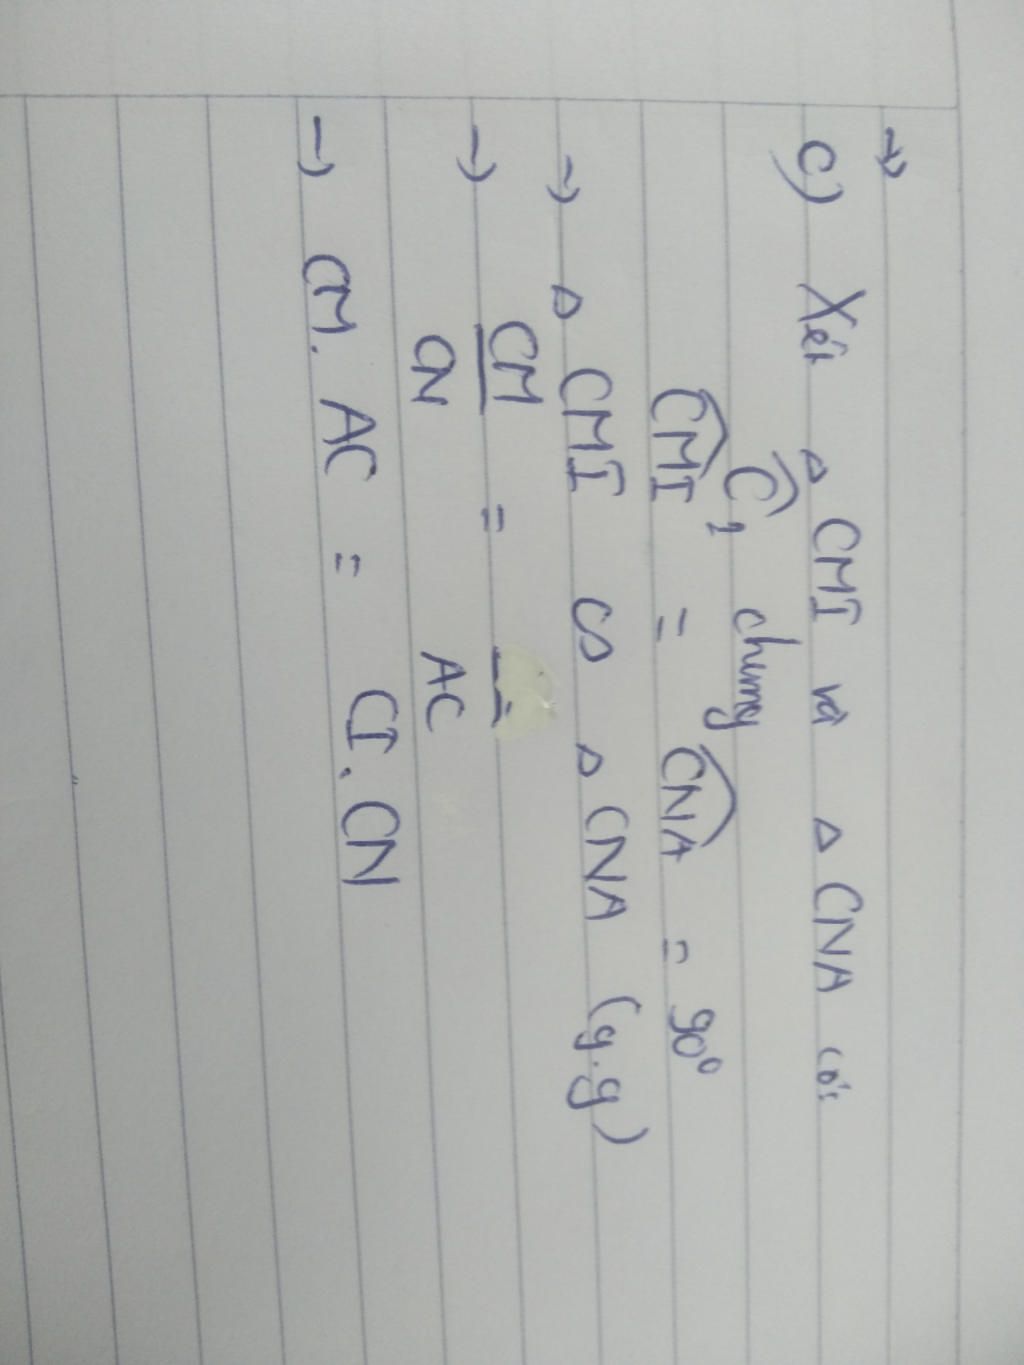 →
c) Xét △ CMI và △ CNA có:
Ĉ₁ chung
CMI = CNA = 90°
→ △ CMI ∽ △ CNA (g.g)
→ CM/CN = /AC
→ CM. AC = CI. CN